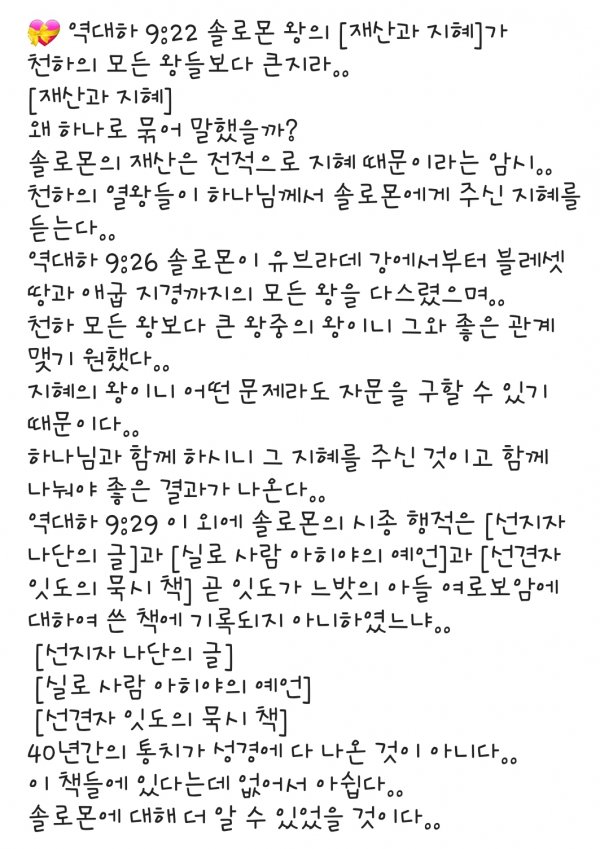 💝 역대하 9:22 솔로몬 왕의 [재산과 지혜]가
천하의 모든 왕들보다 큰지라。。
[재산과 지혜]
왜 하나로 묶어 말했을까?
솔로몬의 재산은 전적으로 지혜 때문이라는 암시。。
천하의 열왕들이 하나님께서 솔로몬에게 주신 지혜를
듣는다。。
역대하 9:26 솔로몬이 유브라데 강에서부터 블레셋
땅과 애굽 지경까지의 모든 왕을 다스렸으며。。
천하 모든 왕보다 큰 왕중의 왕이니 그와 좋은 관계
맺기 원했다。。
지혜의 왕이니 어떤 문제라도 자문을 구할 수 있기
때문이다。。
하나님과 함께 하시니 그 지혜를 주신 것이고 함께
나눠야 좋은 결과가 나온다。。
역대하 9:29 이 외에 솔로몬의 시종 행적은 [선지자
나단의 글]과 [실로 사람 아히야의 예언]과 [선견자
잇도의 묵시 책] 곧 잇도가 느밧의 아들 여로보암에
대하여 쓴 책에 기록되지 아니하였느냐。。
[선지자 나단의 글]
[실로 사람 아히야의 예언]
[선견자 잇도의 묵시 책]
40년간의 통치가 성경에 다 나온 것이 아니다。。
이 책들에 있다는데 없어서 아쉽다。。
솔로몬에 대해 더 알 수 있었을 것이다。。